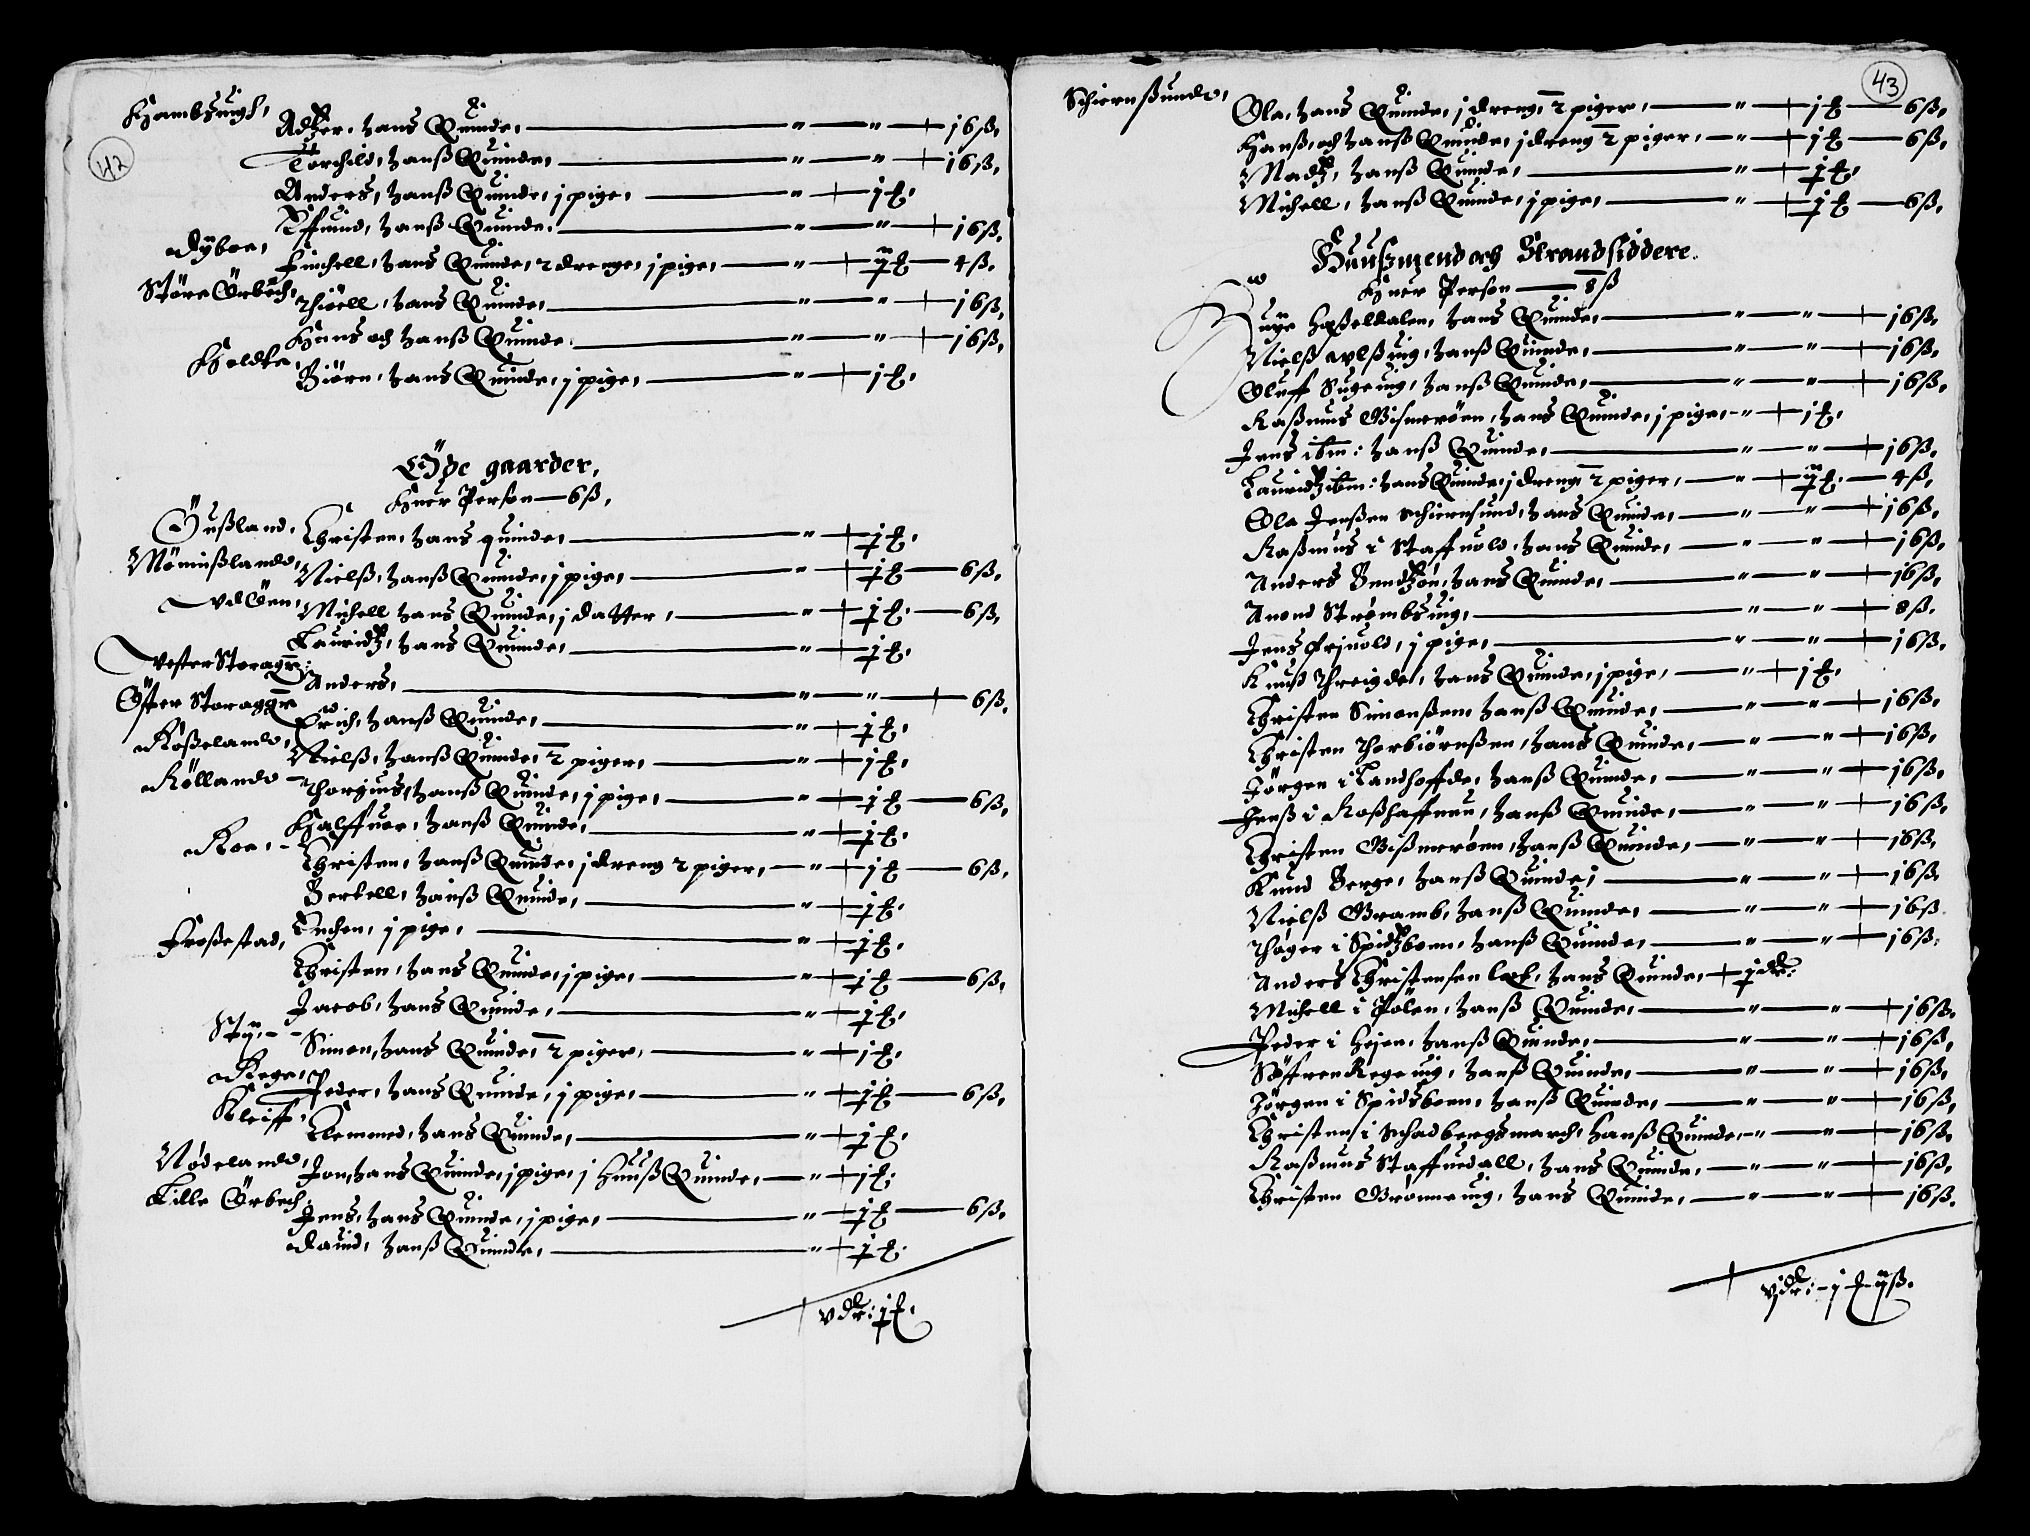 42
Hambßuigh, Adtzer, hans Quinde, — " — " — 16 ß.
Torchild, hanß Quinde, — " — " — 16 ß.
Anders, hanß Quinde, j pige, — " — j £.
Effuind, hanß Quinde. — " — " — 16 ß.
Dyboe, Einchell, hans Quinde, 2 drenge, j pige, — " — ij £ — 4 ß.
Störe Örbech, Thiöell, hans Quinde, — " — " — 16 ß.
Hans och hanß Quinde, — " — " — 16 ß.
Holdte, Biörn, hans Quinde, j pige, — " — j £.
Öde gaarder,
Huer Person — 6 ß.
Öußland, Christen, hans quinde, — " — j £.
Mönnißlandt, Nielß, hanß Quinde, j pige, — " — j £ — 6 ß.
vdöen, Michell hans Quinde, j datter, — " — j £. — 6 ß.
Lauridtz, hans Quinde, — " — j £.
Vester Storagr: Anders, — " — " — 6 ß.
Öster Storaggr Erich, hanß Quinde, — " — j £.
Roßelandt, Nielß, hanß Quinde, 2 piger, — " — j £.
Röllandt — Thorgius, hanß Quinde, j pige, — " — j £ — 6 ß.
Halffuor, hanß Quinde, — " — j £.
Roe, - Christen, hanß Quinde, j dreng 2 piger, — " — j £ — 6 ß.
Bertell, hanß Quinde, — " — j £.
Enchen, j pige, — " — j £.
Froßestad, Christen, hans Quinde, j pige, — " — j £ — 6 ß.
Jacob, hans Quinde, — " — j £.
Stÿ, - - Simon, hans Quinde, 2 piger, — " — j £.
Rege, Peder, hans Quinde, j pige, — " — j £ — 6 ß.
Kleiff, Klemmed, hans Quinde, — " — j £.
Nödelandt, Jon, hans Quinde, j pige, j Huuß Quinde, — " — j £.
Lille Örbech, Jens, hans Quinde, j pige, — " — j £ — 6 ß.
Dauid, hanß Quinde, — " — j £.
v dlr: j £.
43
Schiernßundt, Ola, hans Quinde, j dreng, 2 piger, — " — j £ — 6 ß.
Hanß, och hanß Quinde, j dreng 2 piger, — " — j £ — 6 ß.
Madtz, hanß Quinde, — " — j £.
Michell, hanß Quinde, j pige, — " — j £ — 6 ß.
Huußmend och Strandsiddere.
Huer Person — 8 ß
Aage Haßeldalen, hans Quinde, — " — " — 16 ß.
Nielß aulßuig, hanß Quinde, — " — " — 16 ß.
Oluff Sugeuig, hanß Quinde, — " — " — 16 ß.
Raßmus Bismeröen, hans Quinde, j pige, - " — j £.
Jens ibm: hanß Quinde, — " — " — 16 ß.
Lauridtz ibm: hans Quinde, j dreng 2 piger, — " — ij £. — 4 ß.
Ola Jenßen Schiernsund, hans Quinde, — " — " — 16 ß.
Raßmus i Staffuold, hans Quinde, — " — " — 16 ß.
Anders Bendtzön, hans Quinde, — " — " — 16 ß.
Anond Strömbßuig, — " — " — 8 ß.
Jens friuold, j pige, — " — " — 16 ß.
Knud Threigde, hans Quinde, j pige, — " — j £.
Christen Simonßen, hanß Quinde, — " — " — 16 ß.
Christen Thorbiörnßen, hans Quinde, — " — " — 16 ß.
Jörgen i Landhoffde, hanß Quinde, — " — " — 16 ß.
Jenß i Roßhaffnen, hanß Quinde, — " — " — 16 ß.
Christen Bißmeröen, hanß Quinde, — " — " — 16 ß.
Knud Berge, hanß Quinde, — " — " — 16 ß.
Nielß Bramb, hanß Quinde, — " — " — 16 ß
Thager i Spidtzboen, hanß Quinde, — " — " — 16 ß.
Anders Christensen, hans Quinde, — j dlr:
Michell i Pölen, hanß Quinde, — " — " — 16 ß.
Peder i Hejen, hanß Quinde, — " — " — 16 ß.
Söffren Regeuig, hanß Quinde, — " — " — 16 ß.
Jörgen i Spidsboen, hanß Quinde, — " — " — 16 ß.
Christen i Schadbergsmarch, hanß Quinde, - " — " — 16 ß.
Raßmus Staffuedall, hans Quinde, — " — " — 16 ß.
Christen Brönneuig, hans Quinde, — " — " — 16 ß.
vj dlr: - j £ - ij ß.